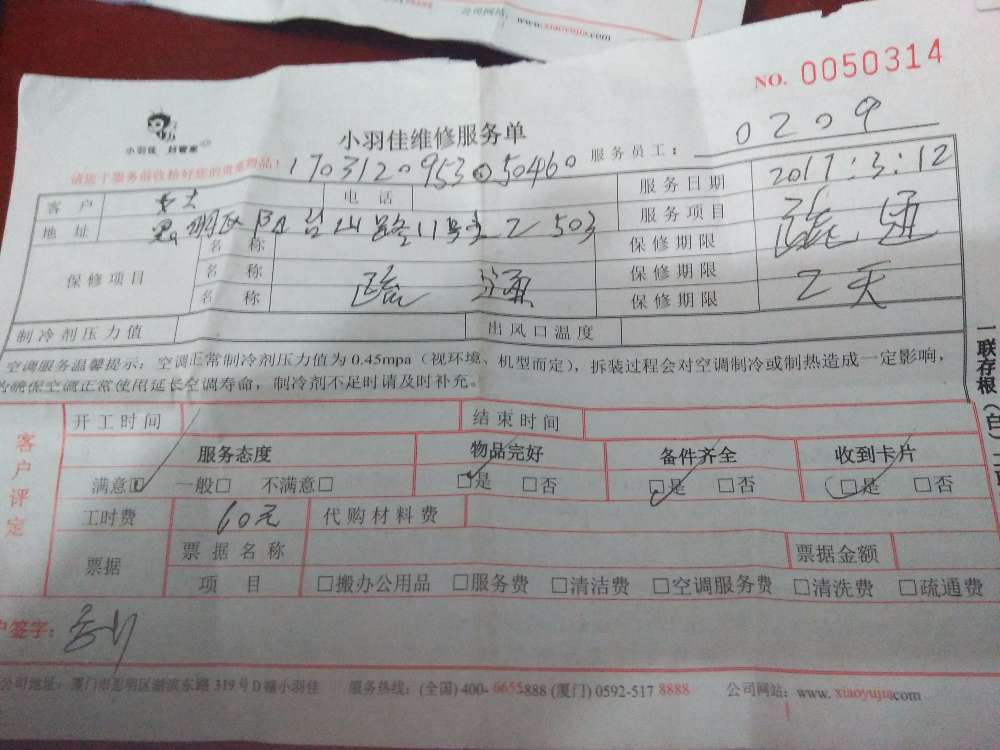 公司网站：www.xiaoyujia.com
NO. 0050314
小羽佳
小羽佳维修服务单
服务员工： 0209
请您于服务前收拾好您的贵重物品！
客户 电话 服务日期 2017:3:12
地址 服务项目 疏通
名称 保修期限
保修项目 名称 疏通 保修期限 2天
名称 保修期限
制冷剂压力值 出风口温度
空调服务温馨提示：空调正常制冷剂压力值为 0.45mpa（视环境、机型而定），拆装过程会对空调制冷或制热造成一定影响，
确保空调正常使用延长空调寿命，制冷剂不足时请及时补充。
一联存根（白）
客户评定
开工时间 结束时间
服务态度 物品完好 备件齐全 收到卡片
满意□ 一般□ 不满意□ □是 □否 □是 □否 □是 □否
工时费 60元 代购材料费
票据 票据名称 票据金额
项目 □搬办公用品 □服务费 □清洁费 □空调服务费 □清洗费 □疏通费
户签字：
公司地址：厦门市思明区湖滨东路 319号D幢小羽佳 服务热线：(全国) 400-6655888 (厦门) 0592-5178888 公司网站：www.xiaoyujia.com